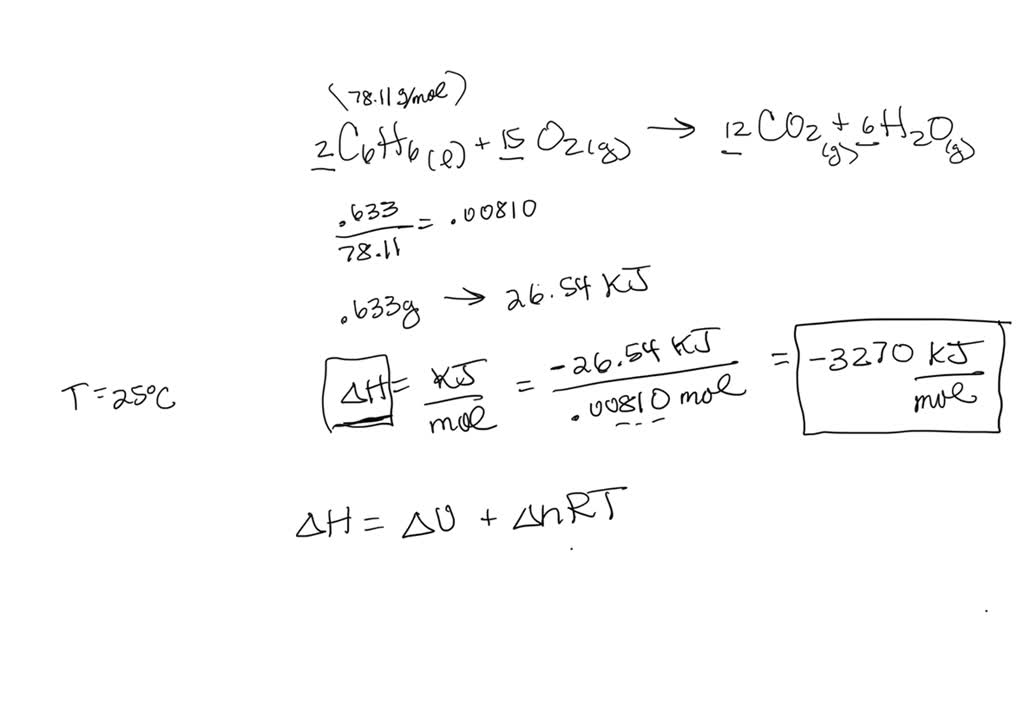 (78.11 g/mol)
2C6H6(l) + 15 O2(g) → 12CO2(g) + 6H2O(g)
.633/78.11 = .00810
.633g → 26.54 KJ
T = 25°C
ΔH = KJ/mol = -26.54 KJ/.00810 mol = -3270 KJ/mol
ΔH = ΔU + ΔnRT